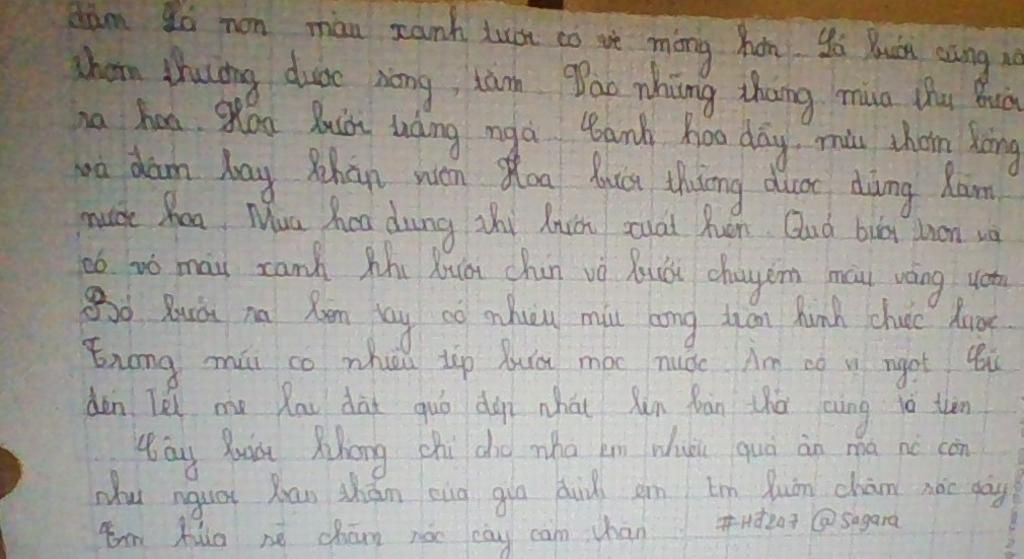 đậm Lá non màu xanh tươi có vẻ mỏng hơn. Lá bưởi cũng rất
thơm thường được xông, tắm. Vào những tháng mùa thu bưởi
ra hoa. Hoa bưởi trắng ngà. Cánh hoa dầy. mùi thơm lừng
và đậm bay khắp vườn Hoa bưởi thường được dùng làm
nước hoa. Mùa hoa dụng thì bưởi xuất hiện. Quả bưởi tròn và
có vỏ màu xanh khi bưởi chín vỏ bưởi chuyển màu vàng ươm
Bổ bưởi ra bên tay có nhiều múi cong tròn hình chiếc lược.
Trong múi có nhiều tép bưởi mọc nước. Ăm có vị ngọt. Cứ
đến Tết mẹ lại đặt quả đẹp nhất lên bàn thờ cúng tổ tiên
Cây bưởi không chỉ cho nhà em nhiều quả ăn mà nó còn
như người bạn thân của gia đình em. Em luôn chăm sóc cây
Em hứa sẽ chăm sóc cây cẩn thận #Hđ2a7 @Sagara